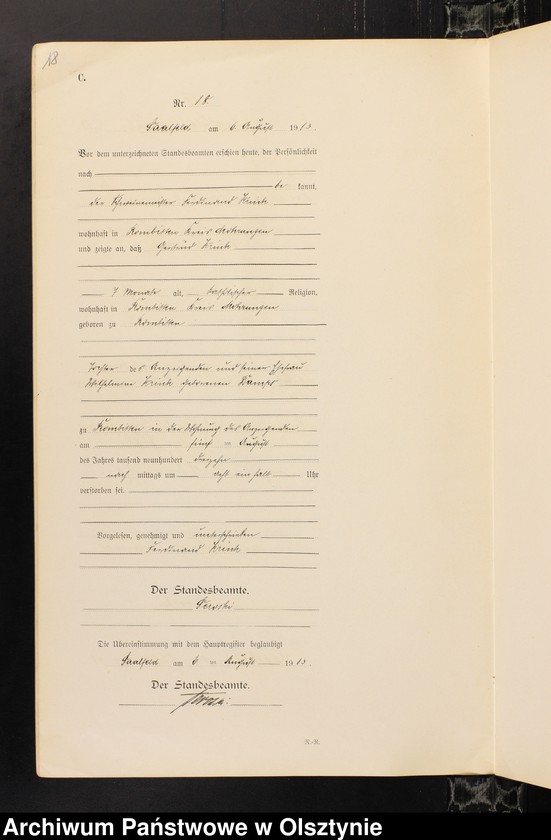 18
C.
Nr. 18
Saalfeld am 6 August 1913.
Vor dem unterzeichneten Standesbeamten erschien heute, der Persönlichkeit
nach
be kannt,
der Ferdinand
wohnhaft in Kreis Mohrungen
und zeigte an, daß
9 Monate alt, Religion,
wohnhaft in Kreis Mohrungen
geboren zu
Tochter des Anzeigenden und seiner Ehefrau
Wilhelmine geborenen
zu in der Wohnung des Anzeigenden
am fünf = August
des Jahres tausend neunhundert dreizehn
nach mittags um acht ein halb Uhr
verstorben sei.
Vorgelesen, genehmigt und unterschrieben
Ferdinand
Der Standesbeamte.
Die Übereinstimmung mit dem Hauptregister beglaubigt
Saalfeld am 6 = August 1913.
Der Standesbeamte.
Archiwum Państwowe w Olsztynie